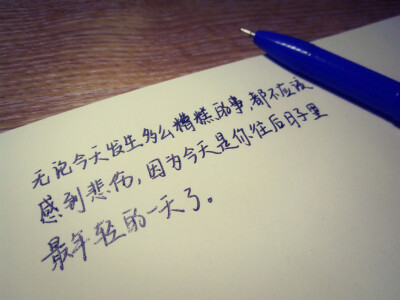 无论今天发生多么糟糕的事，都不应该
感到悲伤，因为今天是你往后日子里
最年轻的一天了。